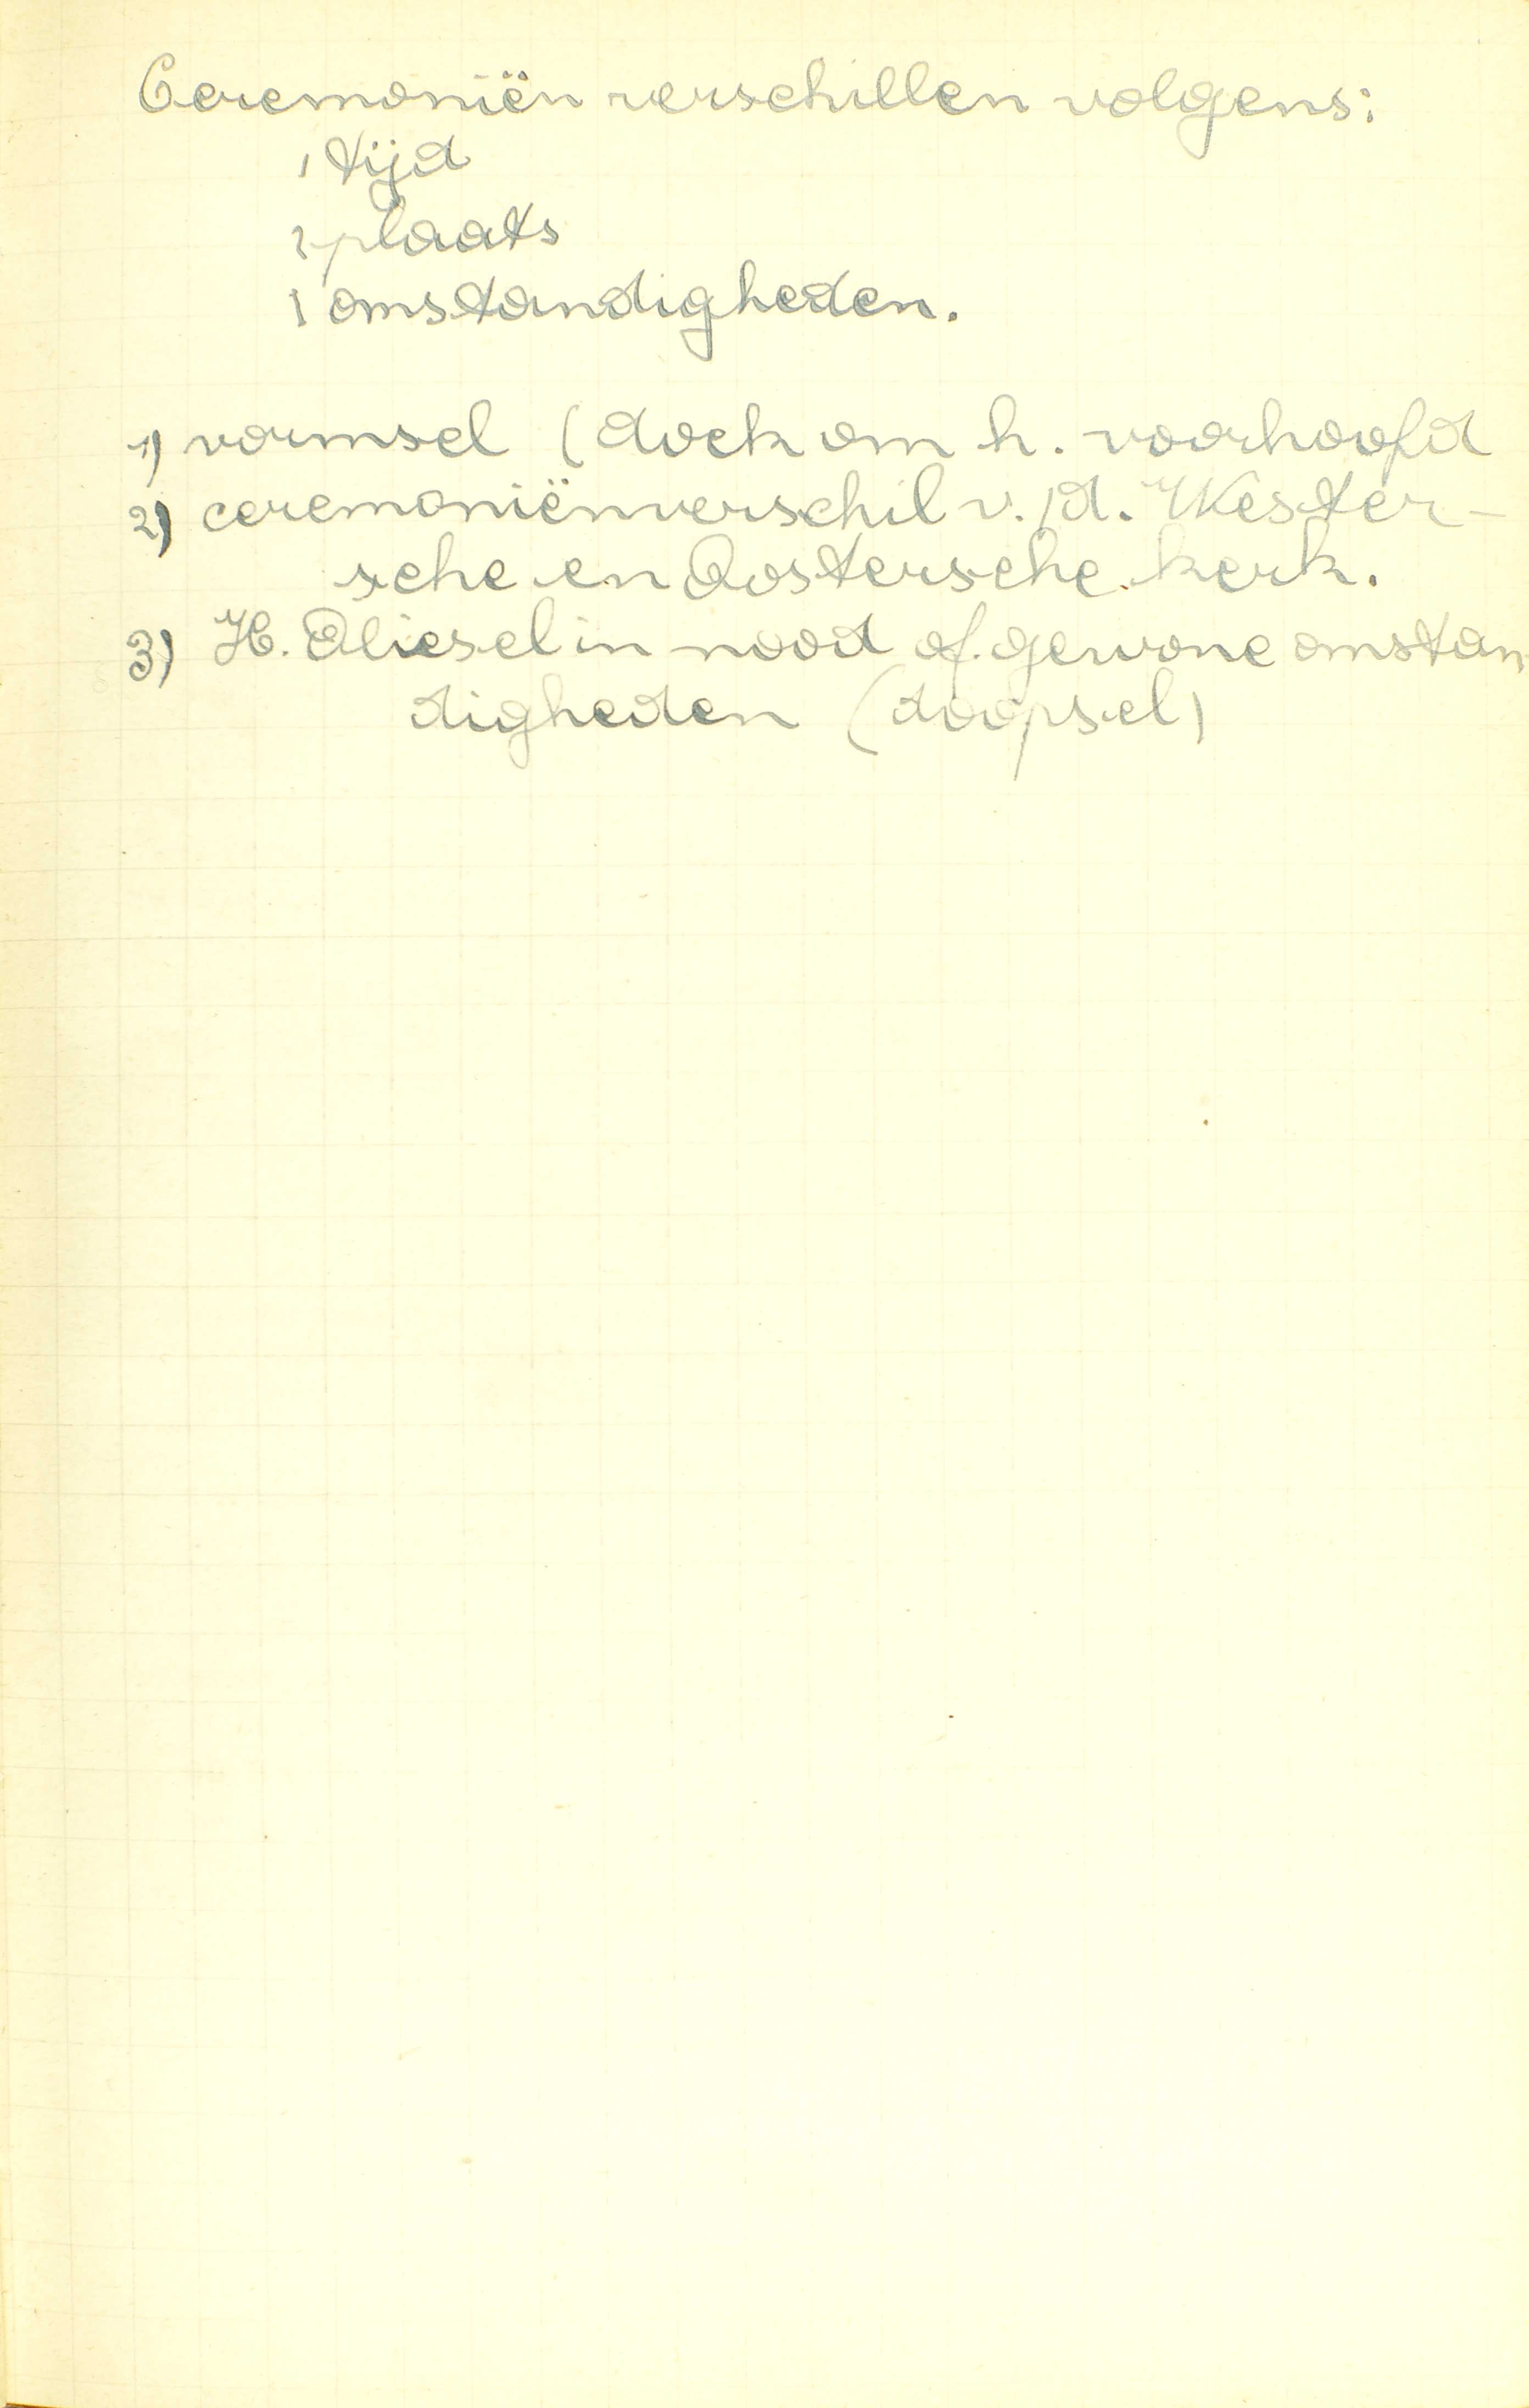 Ceremoniën verschillen volgens:
1 tijd
2 plaats
3 omstandigheden.
1) vormsel (doek om h. voorhoofd
2) ceremoniënverschil v./d. Wester-
sche en Oostersche kerk.
3) H. Oliesel in nood of gewone omstan
digheden (doopsel)